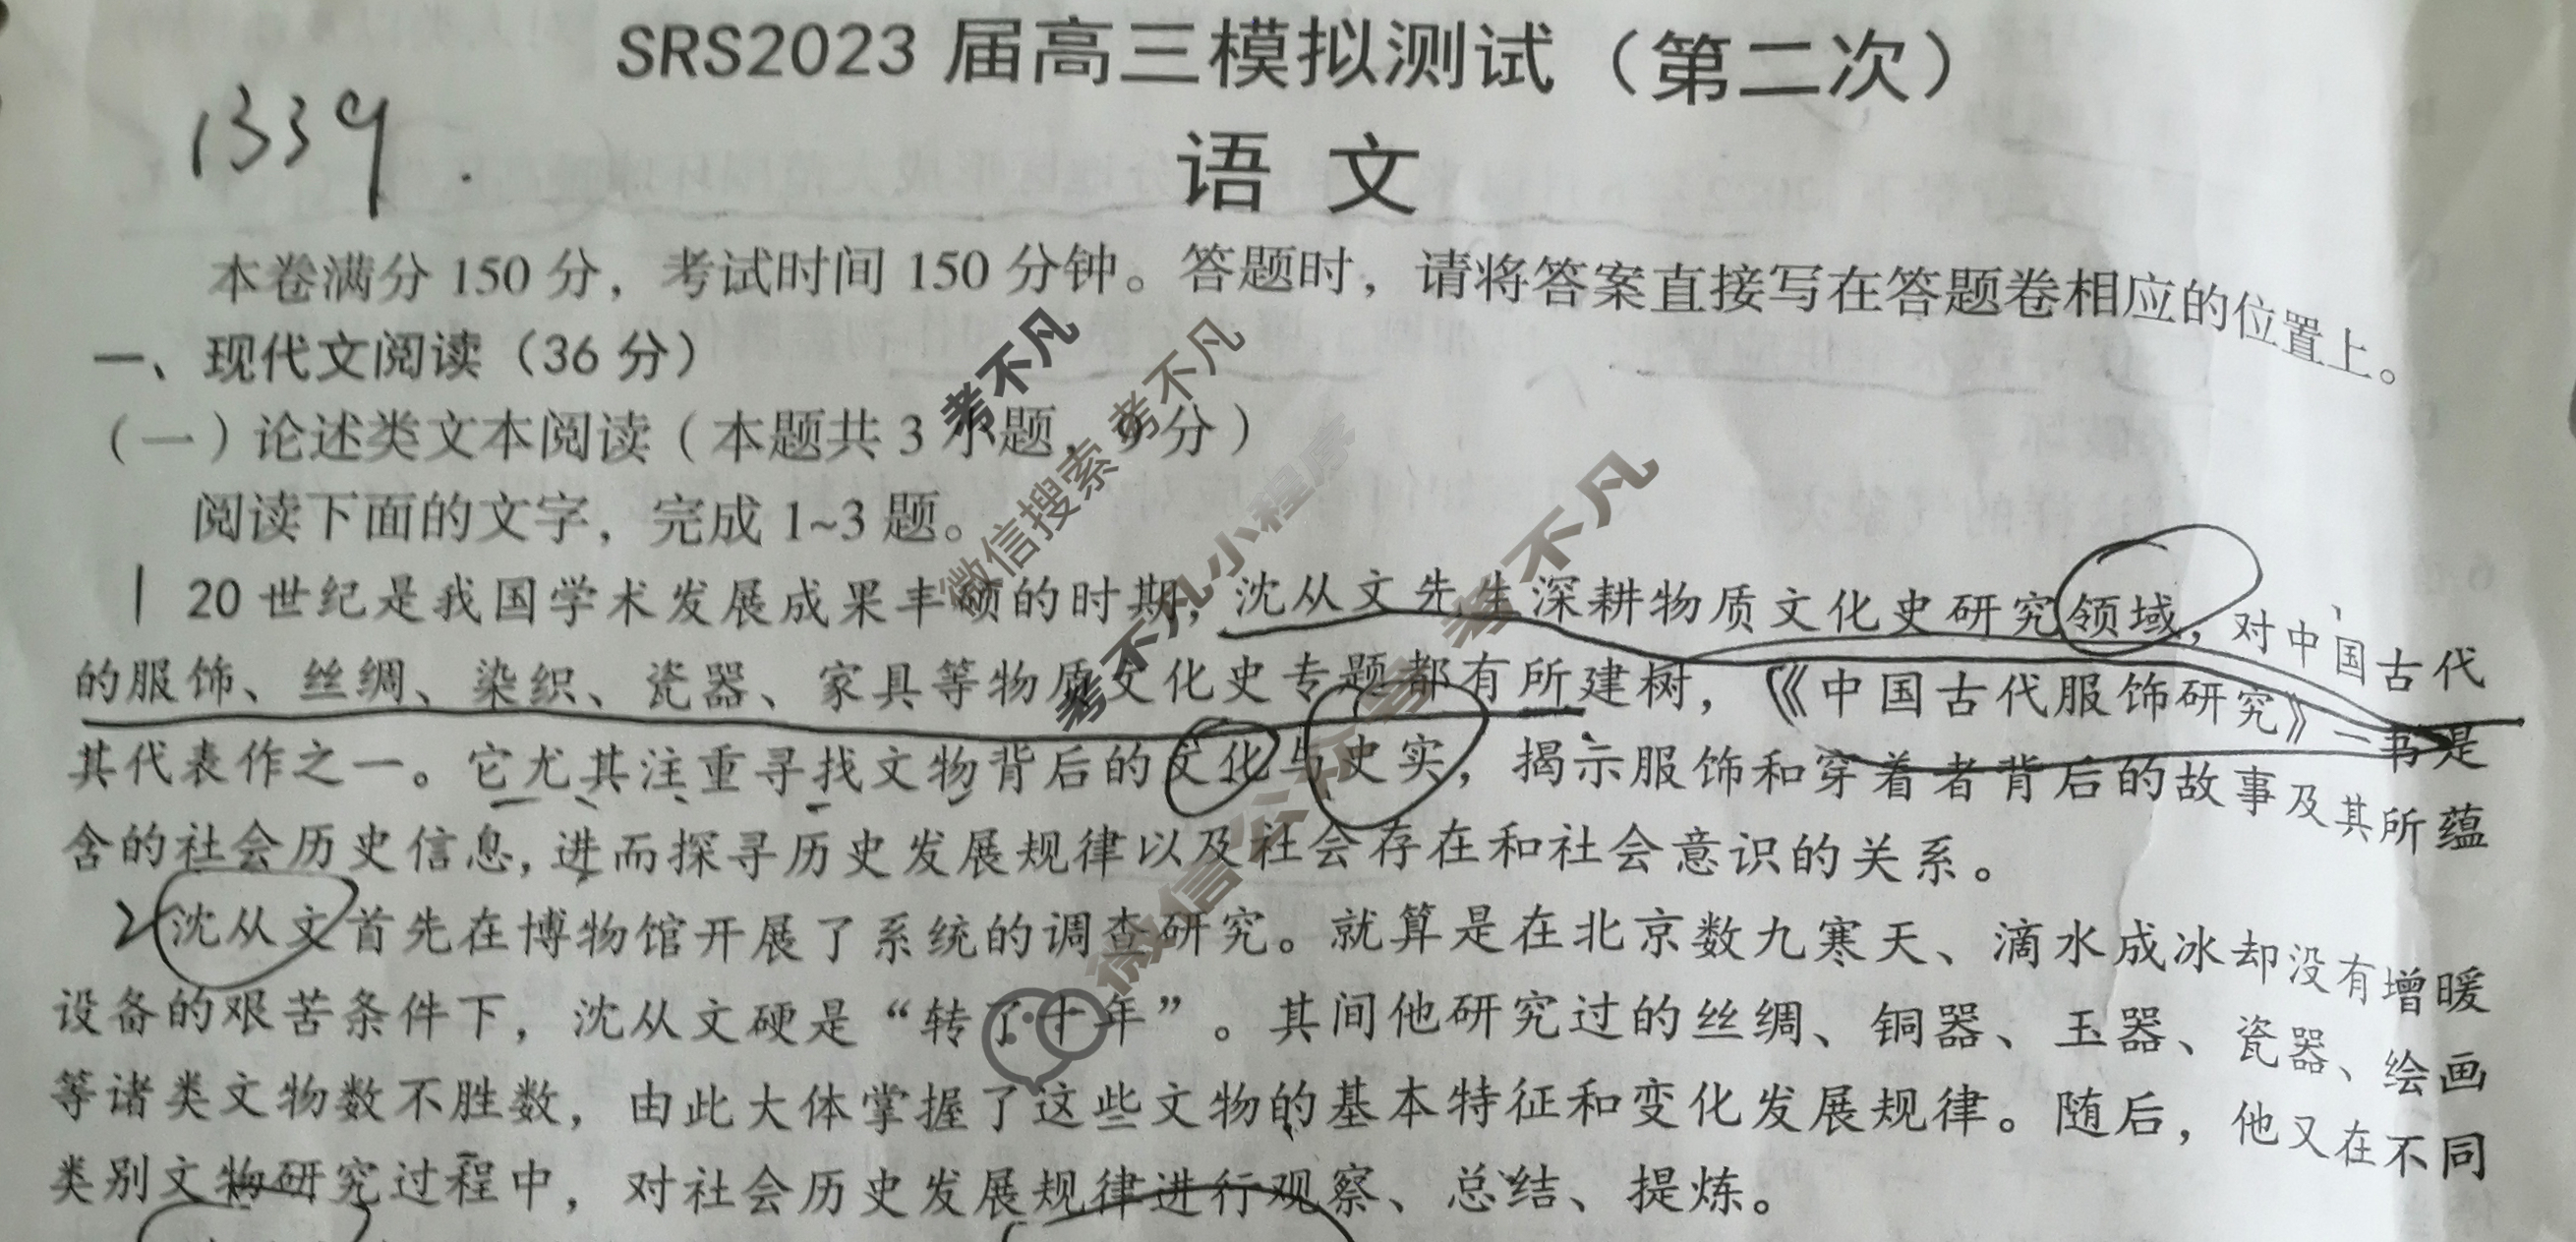 SRS2023届高三模拟测试（第二次）
1339.
语 文
本卷满分150分，考试时间150分钟。答题时，请将答案直接写在答题卷相应的位置上。
一、现代文阅读（36分）
（一）论述类文本阅读（本题共3小题，9分）
阅读下面的文字，完成1~3题。
1 20世纪是我国学术发展成果丰硕的时期，沈从文先生深耕物质文化史研究领域，对中国古代
的服饰、丝绸、染织、瓷器、家具等物质文化史专题都有所建树，《中国古代服饰研究》一书是
其代表作之一。它尤其注重寻找文物背后的文化与史实，揭示服饰和穿着者背后的故事及其所蕴
含的社会历史信息，进而探寻历史发展规律以及社会存在和社会意识的关系。
2 沈从文首先在博物馆开展了系统的调查研究。就算是在北京数九寒天、滴水成冰却没有增暖
设备的艰苦条件下，沈从文硬是“转了十年”。其间他研究过的丝绸、铜器、玉器、瓷器、绘画
等诸类文物数不胜数，由此大体掌握了这些文物的基本特征和变化发展规律。随后，他又在不同
类别文物研究过程中，对社会历史发展规律进行观察、总结、提炼。
考不凡
微信搜索 考不凡
考不凡小程序
微信公众号 考不凡